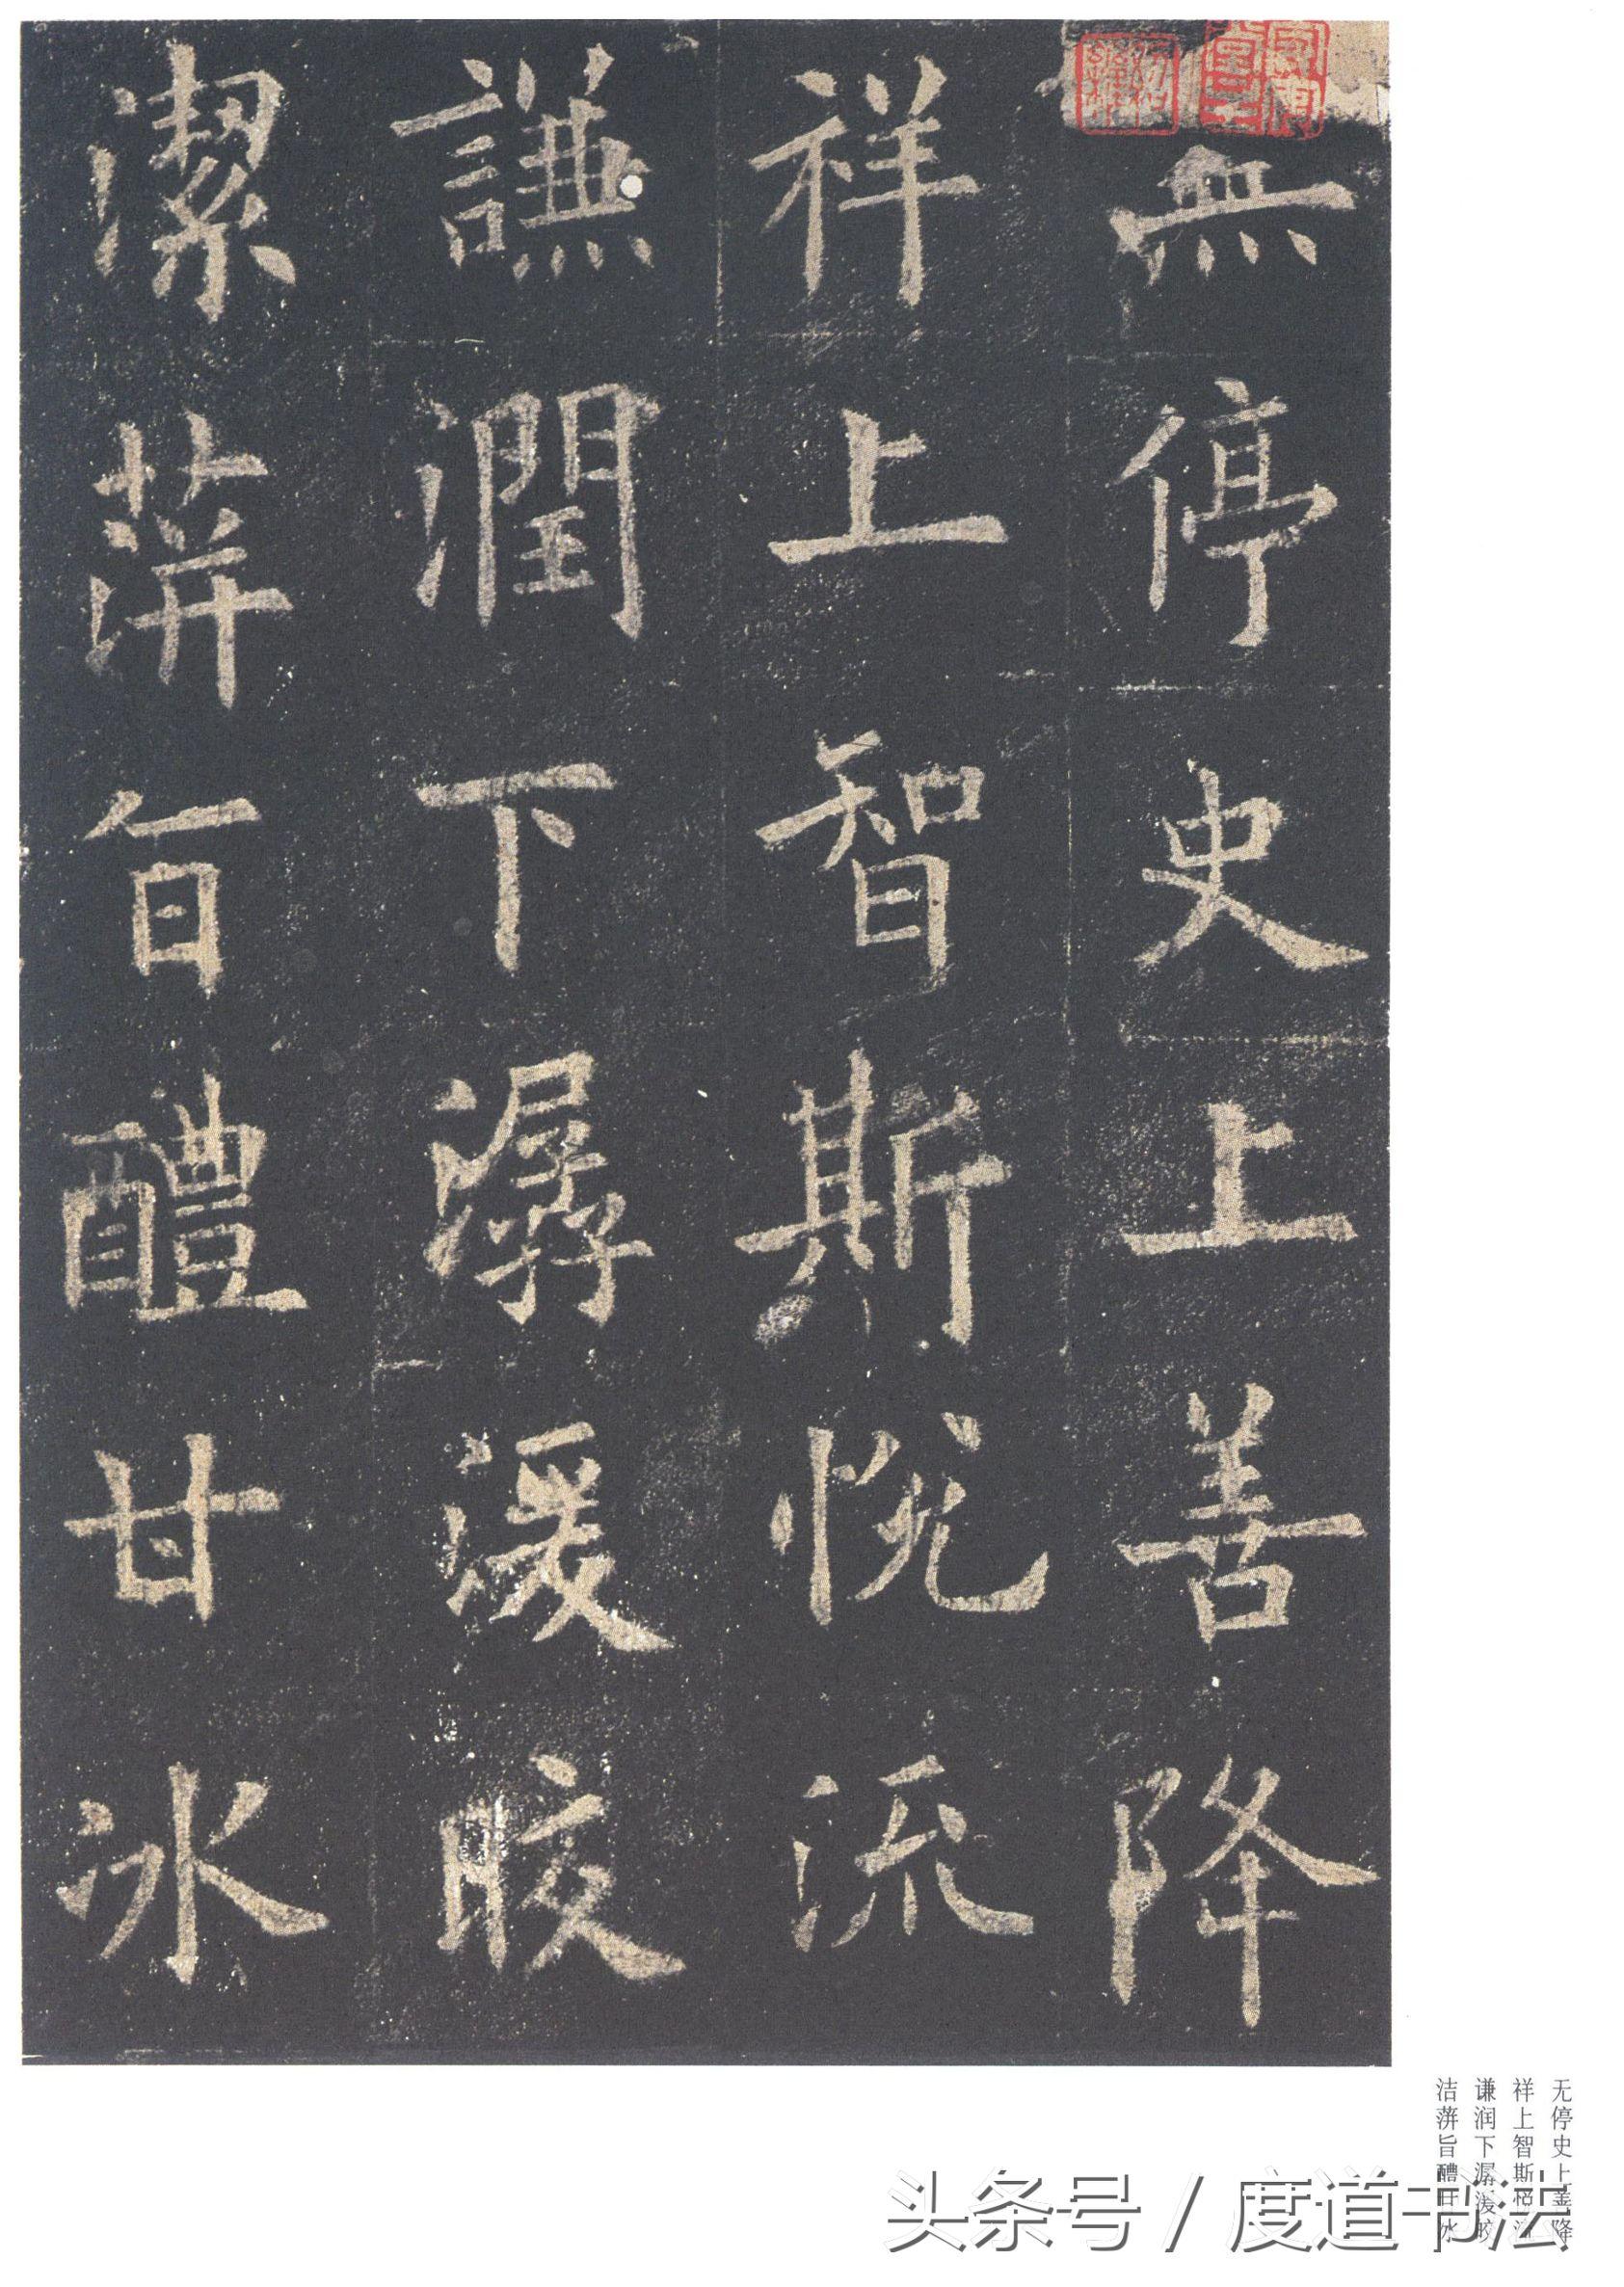 無停史上善降
祥上智斯悅流
謙潤下潺湲晈
潔蓱旨醴甘冰
无停史上善降
祥上智斯悦流
谦润下潺湲皎
洁蓱旨醴甘冰
头条号 / 度道书法